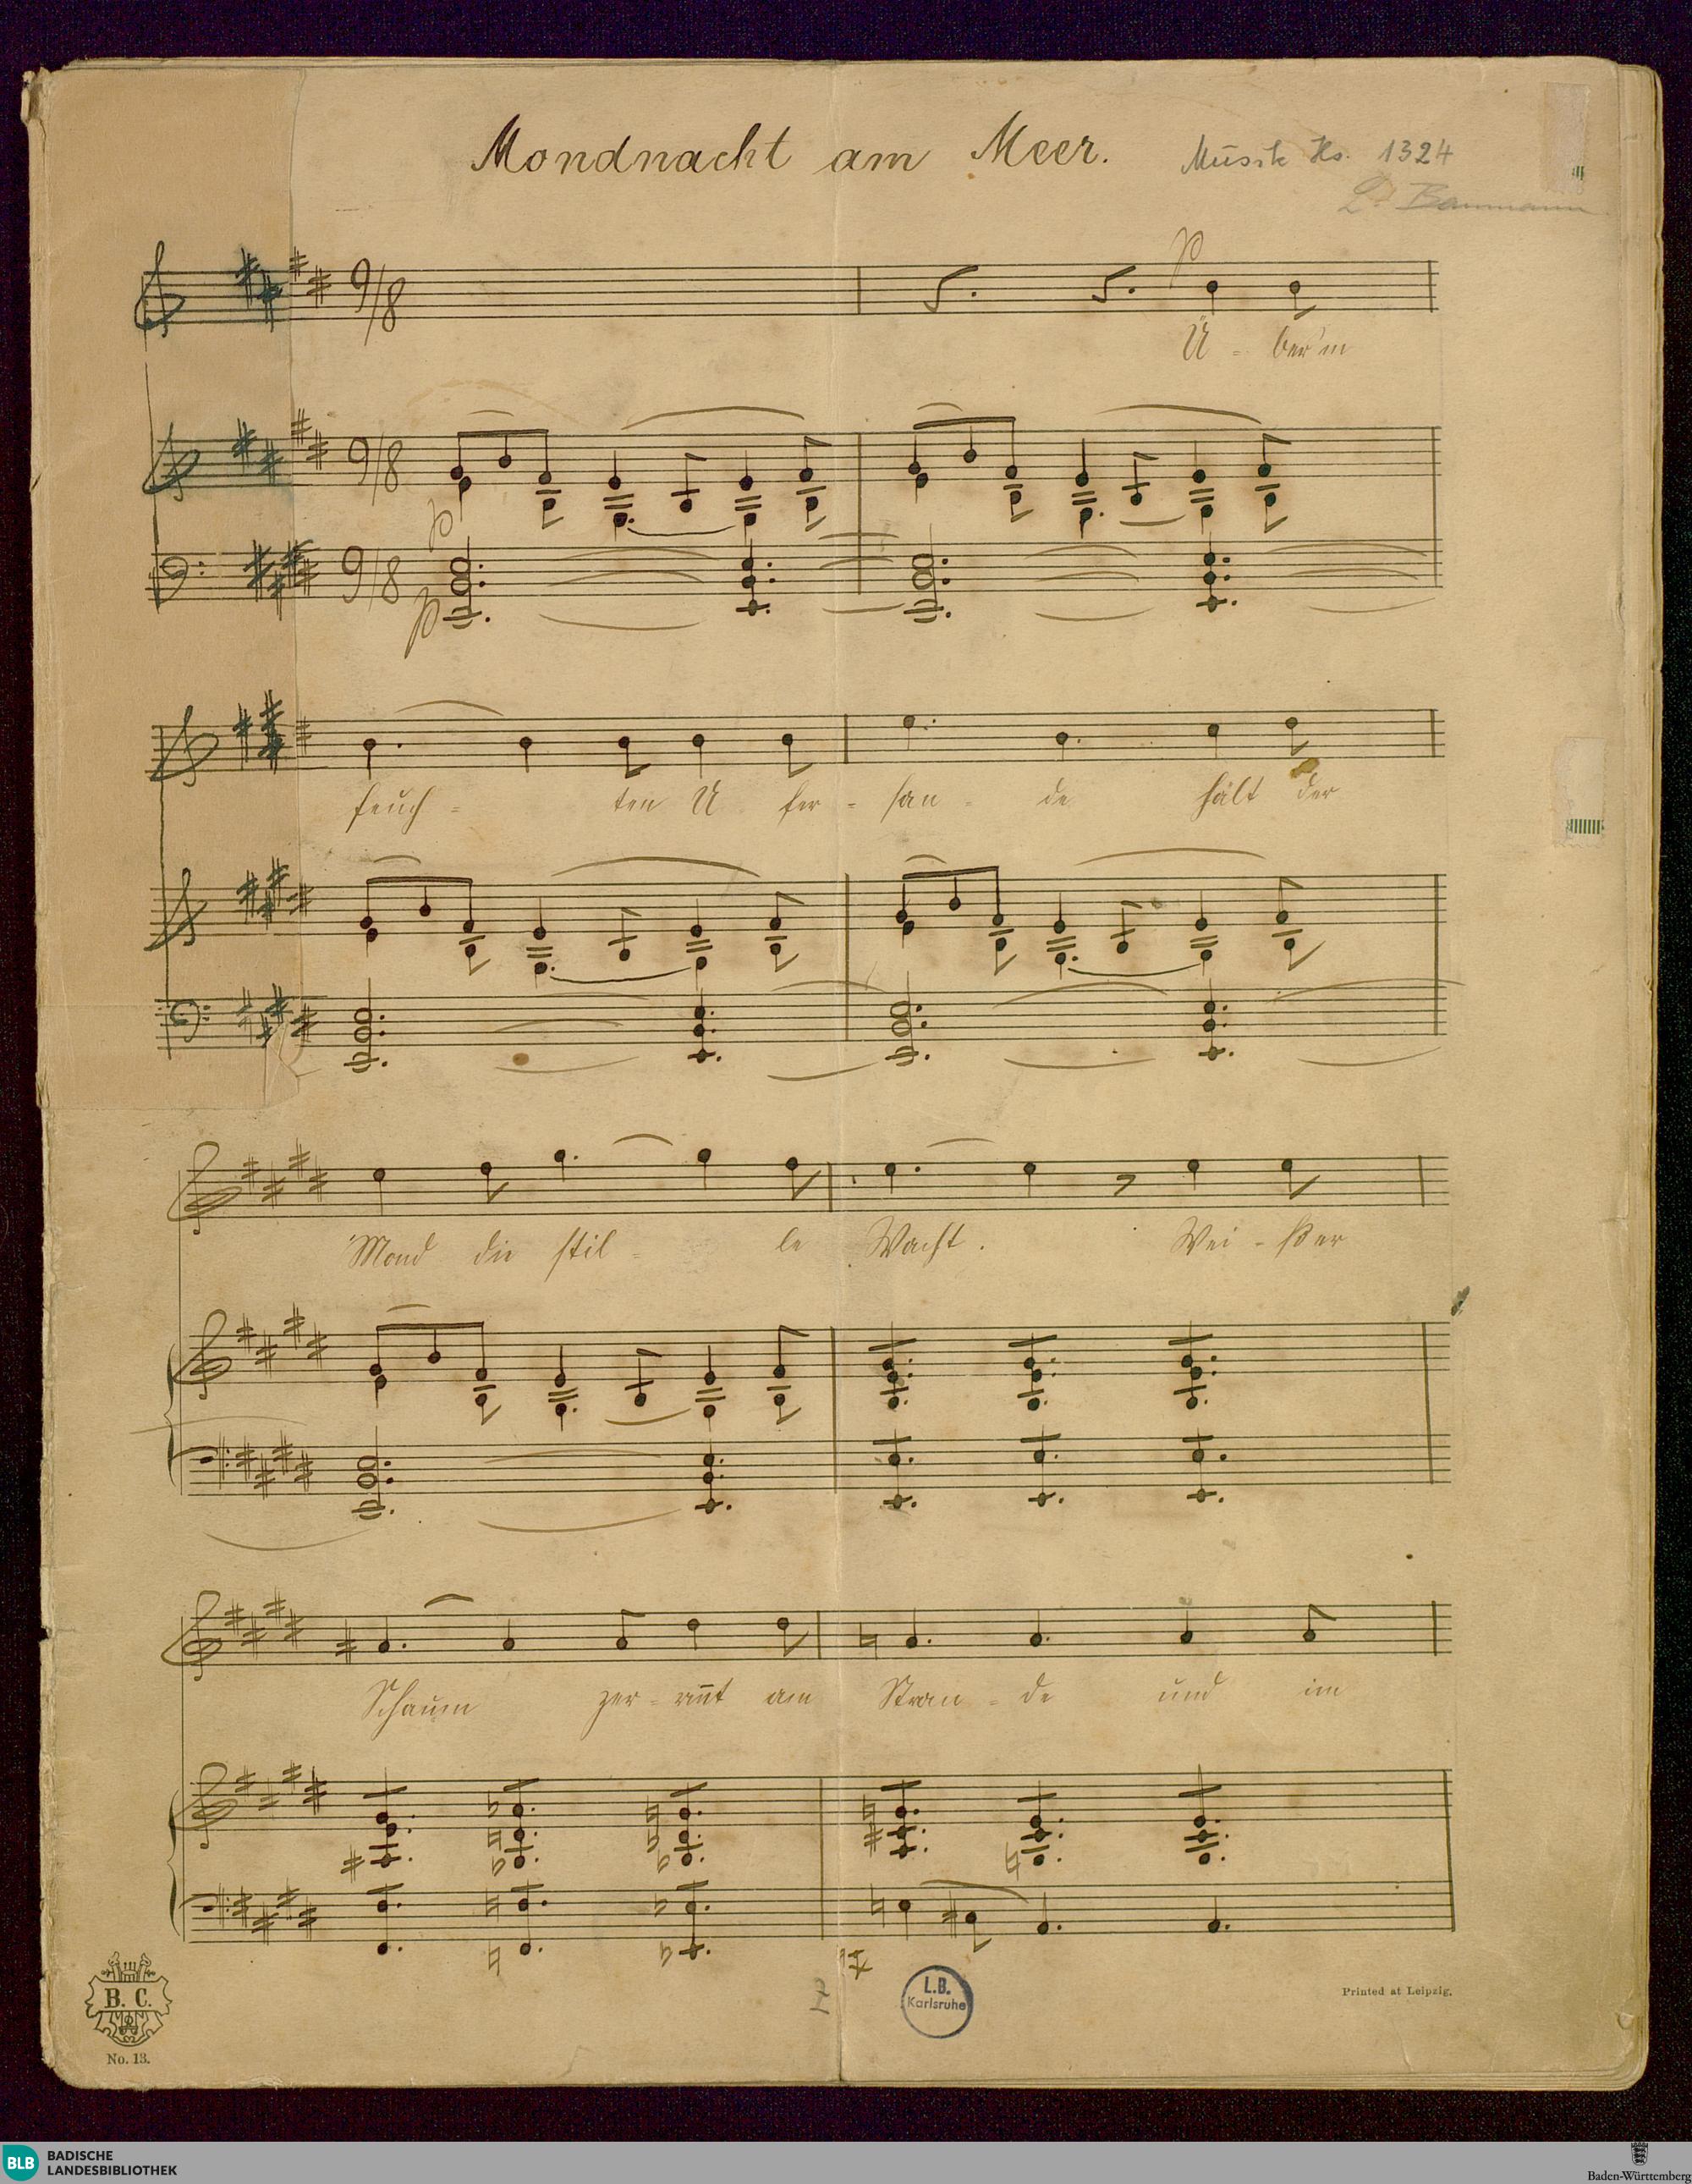 Mondnacht am Meer.
Musik Hs. 1324
L. Baumann
9/8
p
Ü - ber'm
9/8
p
9/8
p
feuch - ten U fer - san - de hält der
Mond die stil - le Wacht. Wei - ßer
Schaum zer - rinnt am Stran - de und im
B. C.
No. 13.
L.B.
Karlsruhe
Printed at Leipzig.
BLB
BADISCHE
LANDESBIBLIOTHEK
Baden-Württemberg